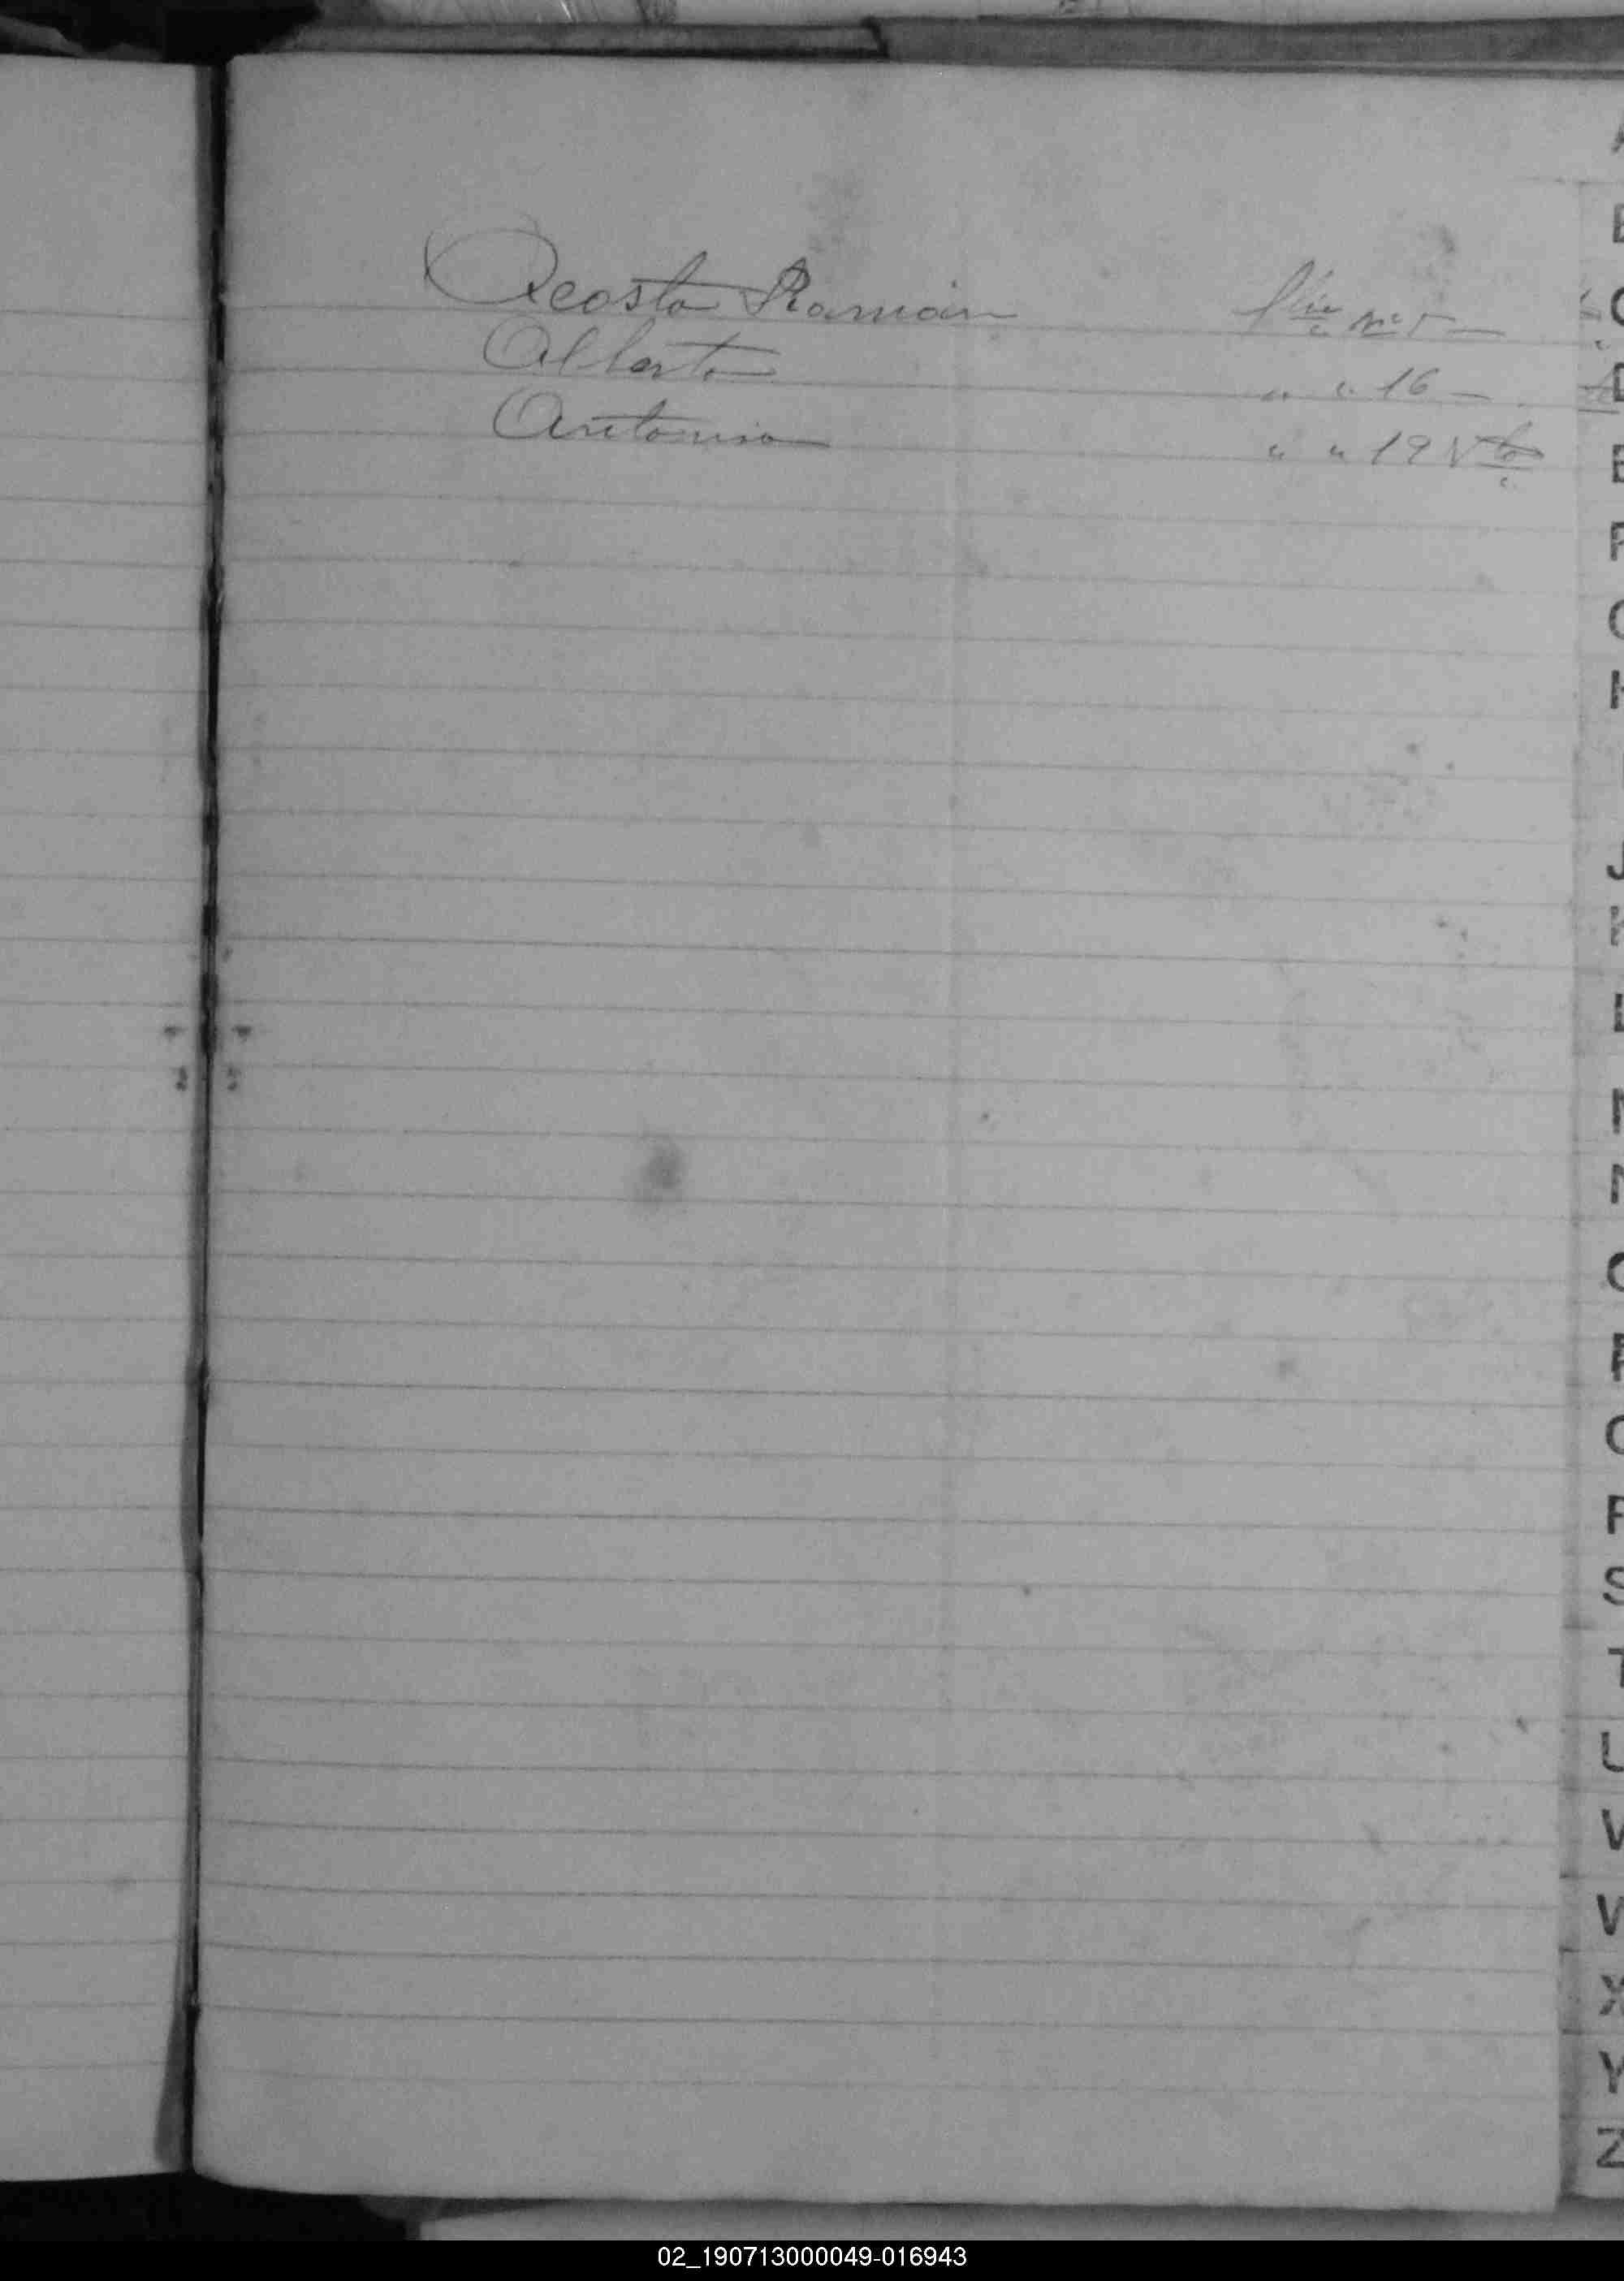 Acosta Ramón flio nº 5 —
Alberto " " 16 —
Antonia " " 19 Vto
A
B
C
D
E
F
G
H
I
J
K
L
M
N
O
P
Q
R
S
T
U
V
W
X
Y
Z
02_190713000049-016943